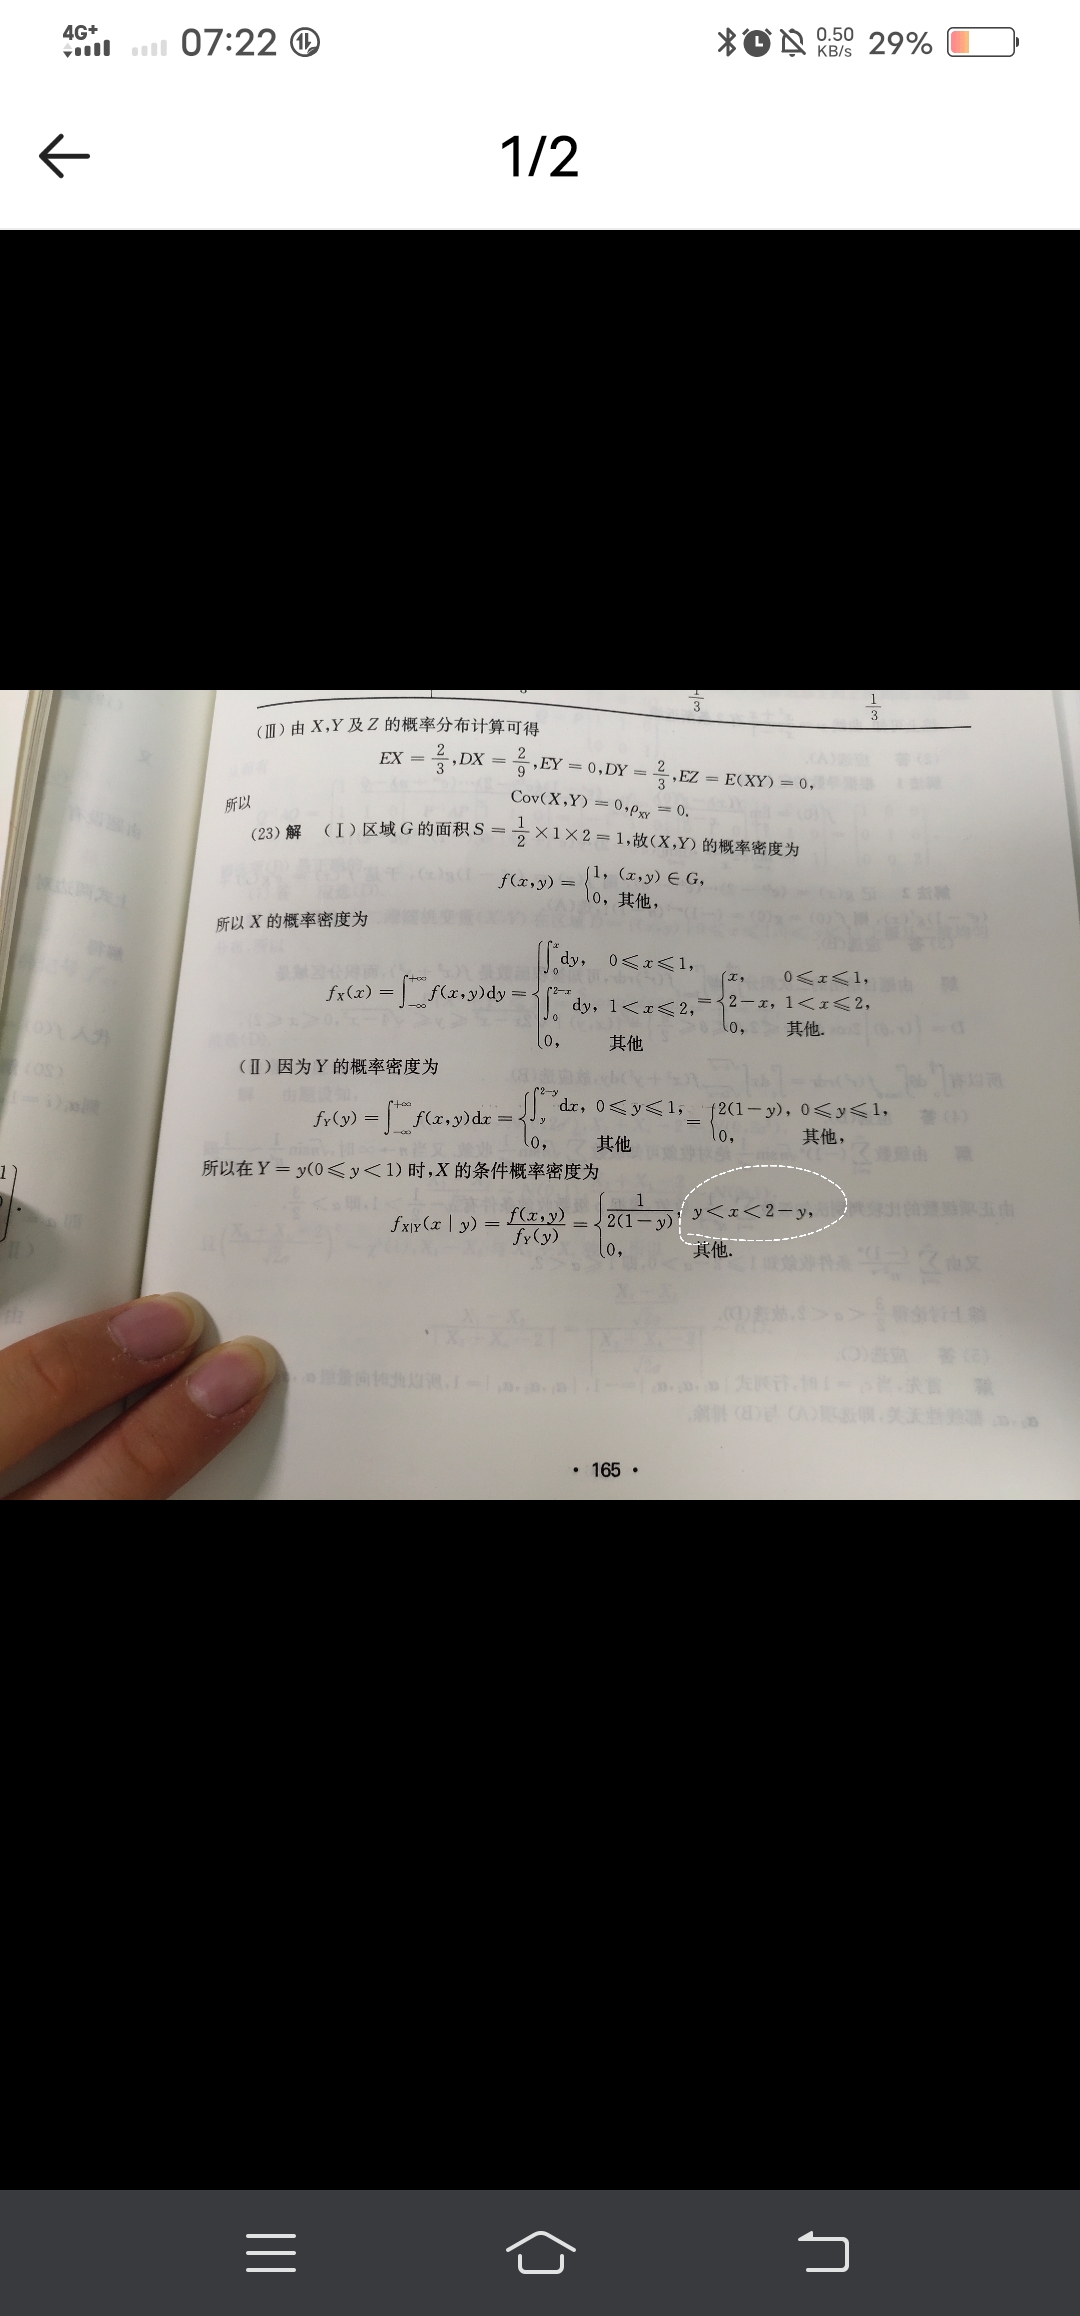 4G+ 07:22 0.50 KB/s 29%
1/2
1/3 1/3
(Ⅲ)由 X,Y 及 Z 的概率分布计算可得
EX = 2/3, DX = 2/9, EY = 0, DY = 2/3, EZ = E(XY) = 0,
所以 Cov(X,Y) = 0, ρ_XY = 0.
(23) 解 (Ⅰ) 区域 G 的面积 S = 1/2 × 1 × 2 = 1, 故 (X,Y) 的概率密度为
f(x,y) = { 1, (x,y) ∈ G,
0, 其他,
所以 X 的概率密度为
f_X(x) = ∫_{-∞}^{+∞} f(x,y)dy = { ∫_0^x dy, 0⩽x⩽1, = { x, 0⩽x⩽1,
∫_0^{2-x} dy, 1<x⩽2, 2-x, 1<x⩽2,
0, 其他 0, 其他.
(Ⅱ) 因为 Y 的概率密度为
f_Y(y) = ∫_{-∞}^{+∞} f(x,y)dx = { ∫_y^{2-y} dx, 0⩽y⩽1, = { 2(1-y), 0⩽y⩽1,
0, 其他 0, 其他,
所以在 Y = y(0⩽y<1) 时, X 的条件概率密度为
f_{X|Y}(x | y) = f(x,y)/f_Y(y) = { 1/2(1-y), y<x<2-y,
0, 其他.
· 165 ·